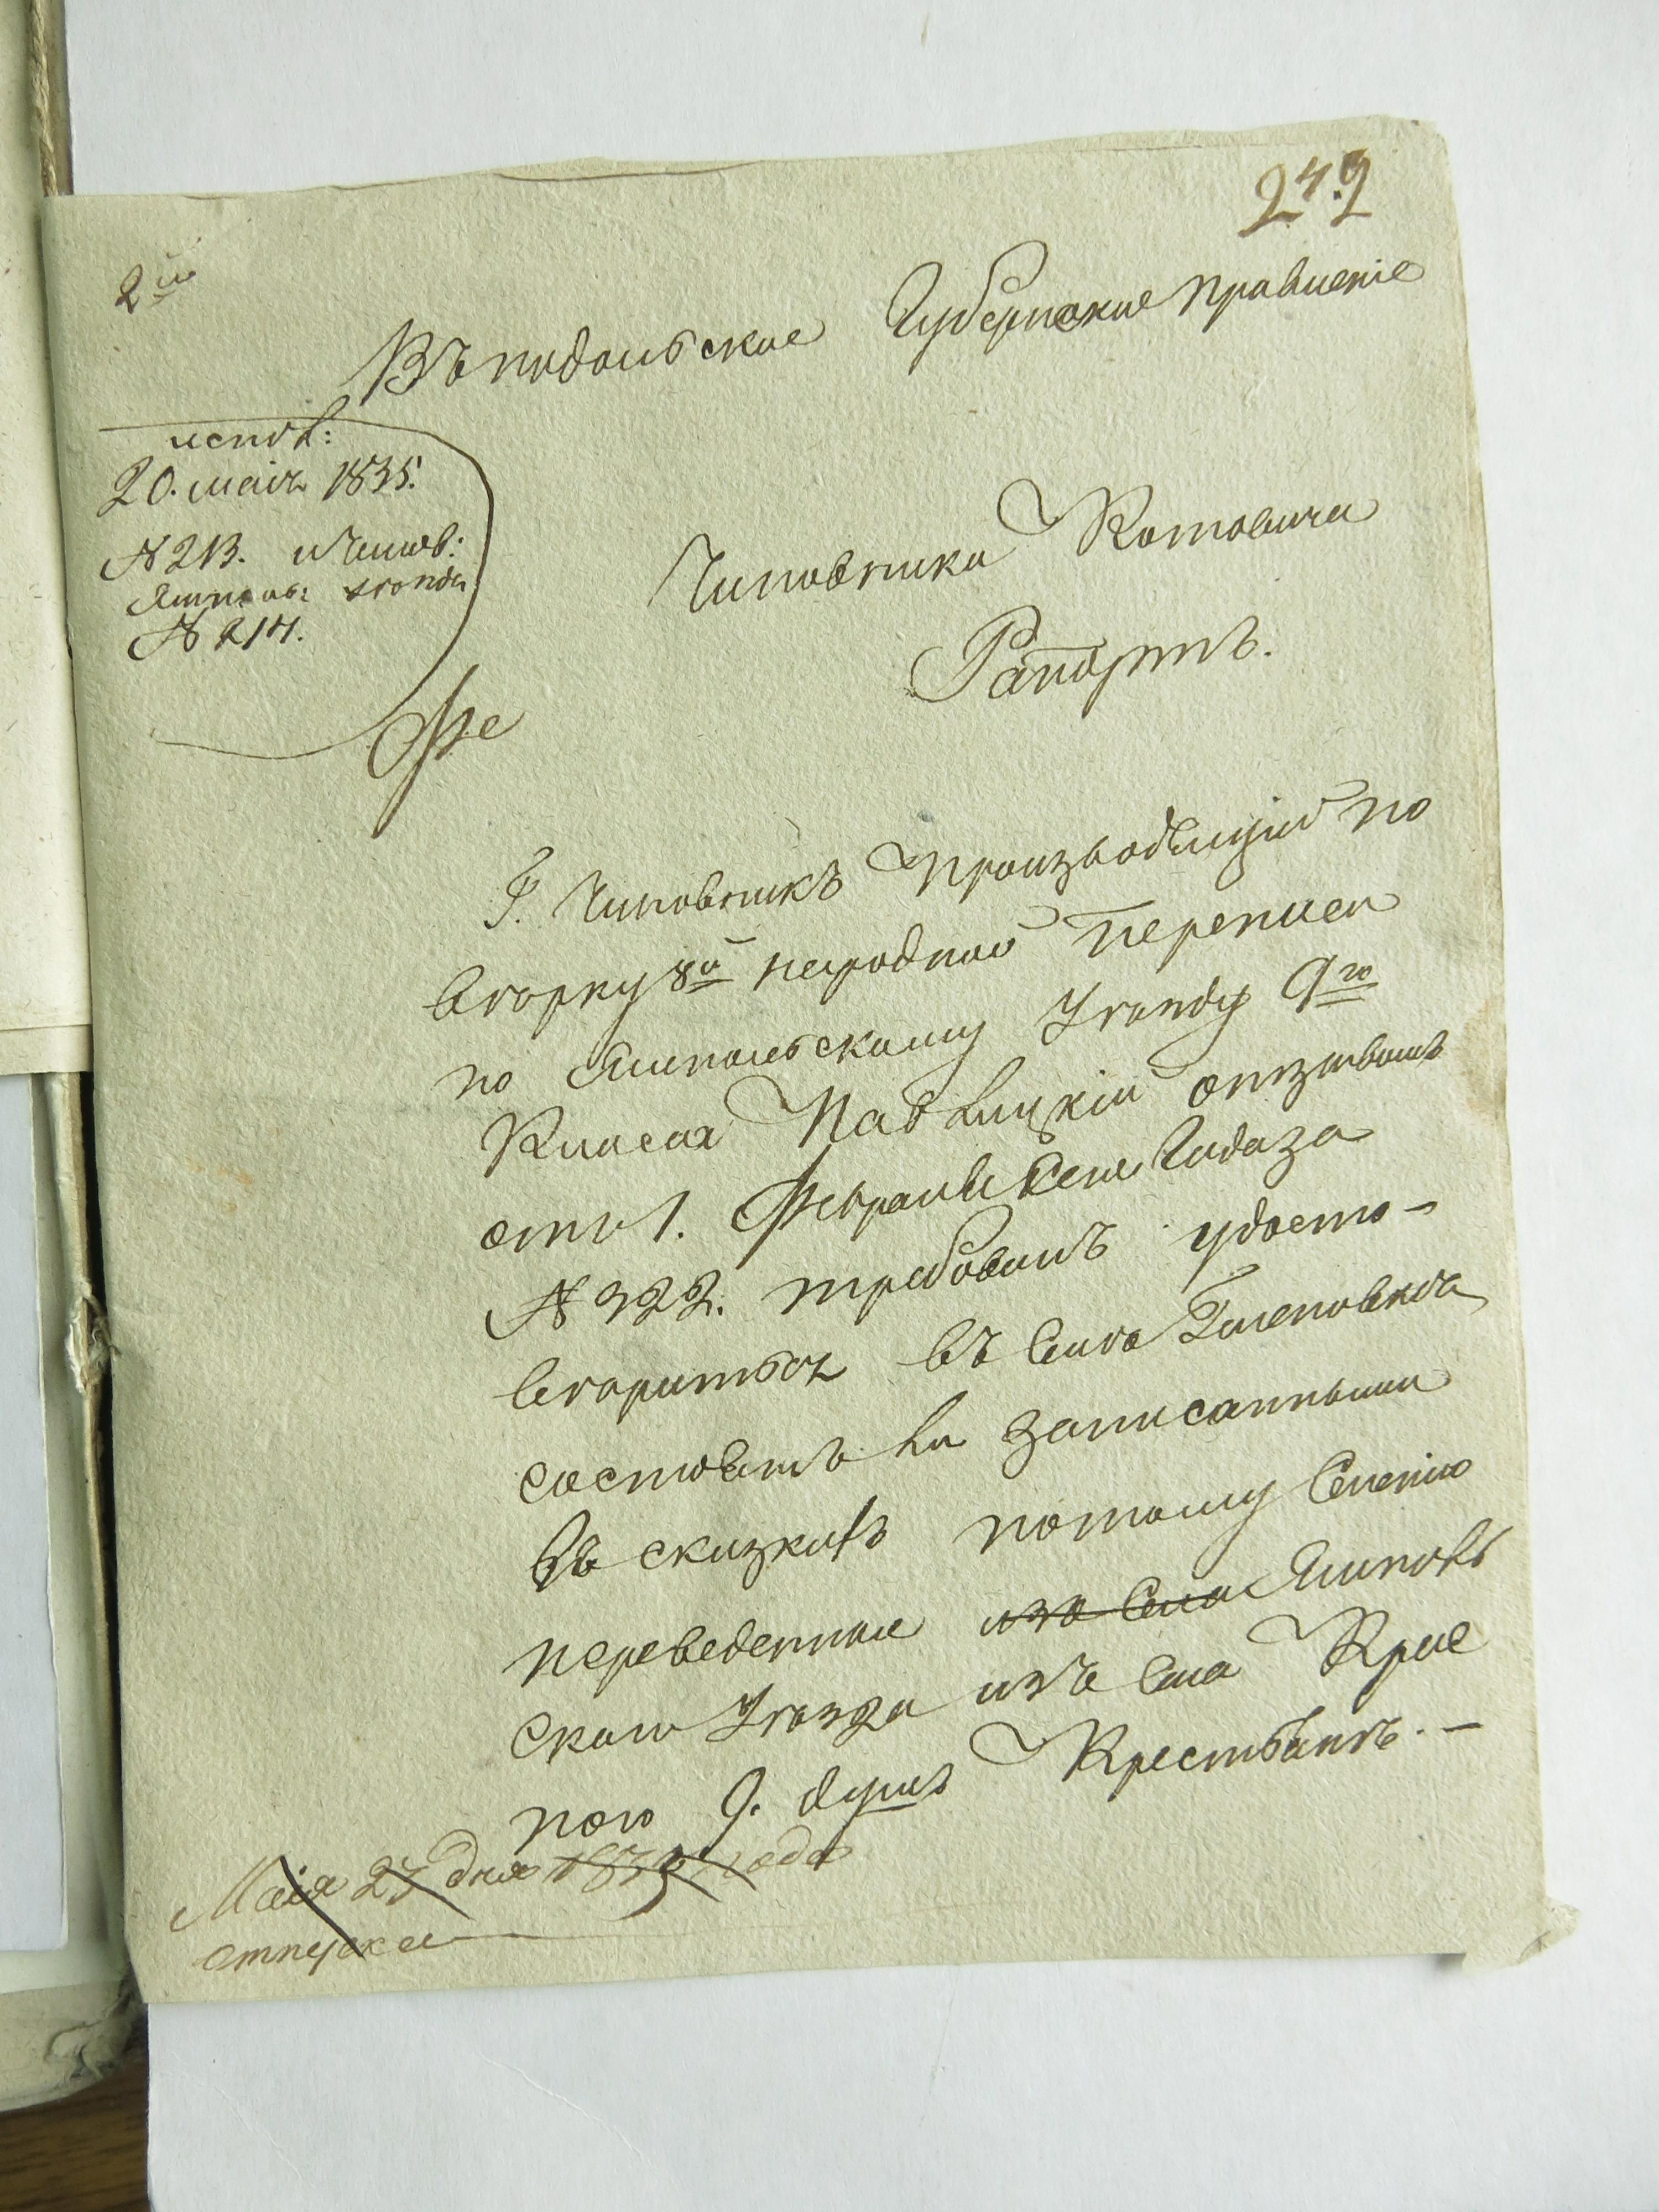 242
2й
Въ подольское Губернское правленіе
испол:
20. маія 1835.
№ 213. и Чинов:
Ямполь: уезда
№ 214.
Чиновника Котовича
Рапортъ.
Г. Чиновникъ производящій по
верку 8й народной переписи
по Ямпольскому уезду 9го
Класса Павлицкій отзывомъ
отъ 1. Февраля сего Года за
№ 322. требовалъ удосто-
вериться въ Селе
состоятъ ли записанными
въ сказкахъ потому Селенію
переведенные изъ Села Ямполь
скаго Уезда изъ Села Крас
ного 9. душъ Крестьянъ. -
Маія 27 дня 1835 года
отпуска